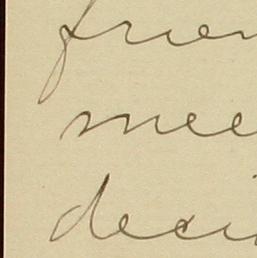 frien
mee
deci